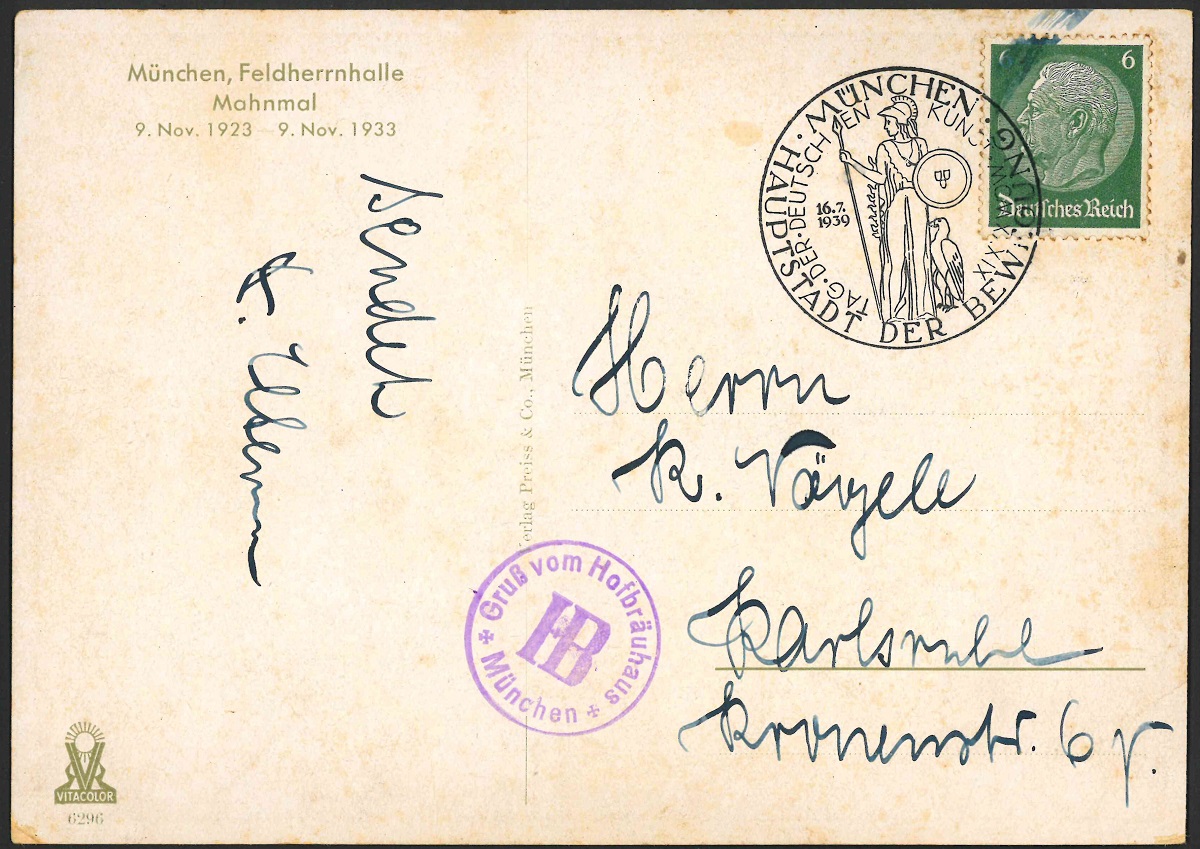 München, Feldherrnhalle
Mahnmal
9. Nov. 1923 9. Nov. 1933
sendet
Verlag Preiss & Co., München
VITACOLOR
6296
6 6
Deutsches Reich
MÜNCHEN · HAUPTSTADT DER BEWEGUNG ·
TAG · DER · DEUTSCHEN KUNST
16.7.
1939
Herrn
K. Vögele
Karlsruhe
Kronenstr. 6
Gruß vom Hofbräuhaus
HB
München